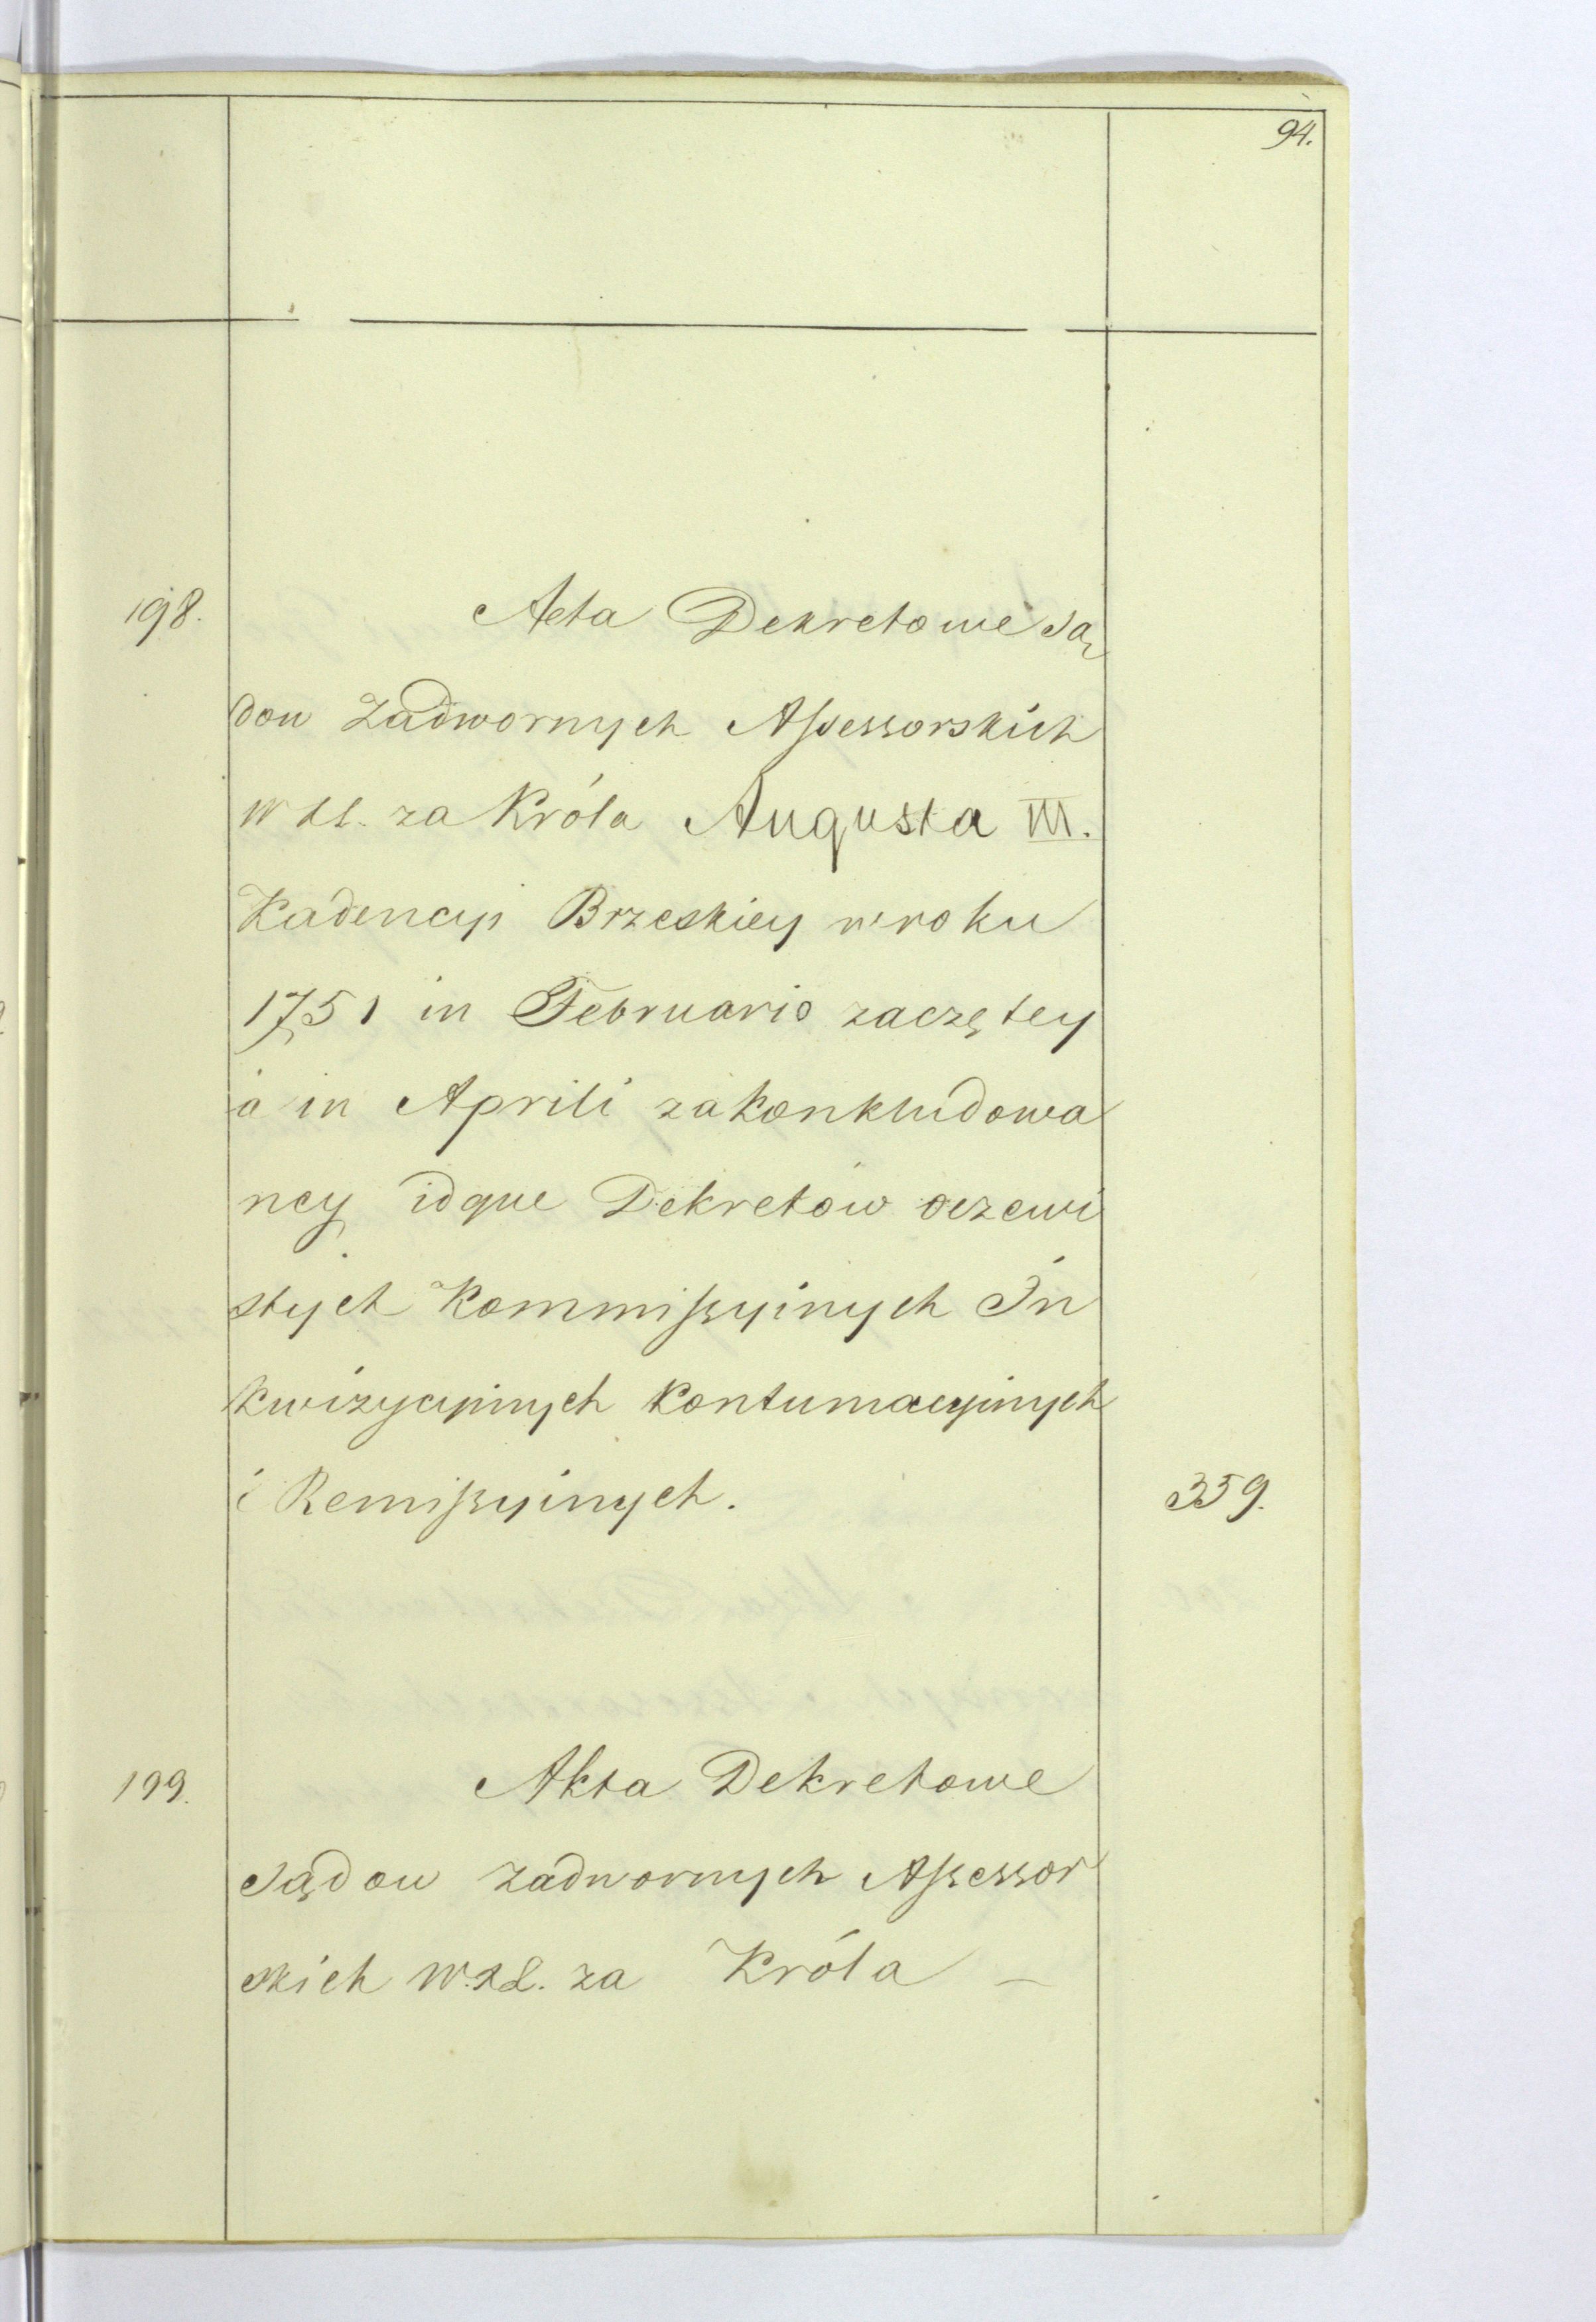 94.
198. Acta Dekretowe Są
dow Zadwornych Assessorskich
W XL. za Króla Augusta III.
Kadencyi Brzeskiey w roku
1751 in Februario zaczętey
a in Aprili zakonkludowa
ney idque Dekretow oczewi
stych Kommissyinych In
kwizycyinych Kontumacyinych
i Remissyinych. 359.
199. Akta Dekretowe
Sądow Zadwornych Assessor
skich W. XL. za Króla –